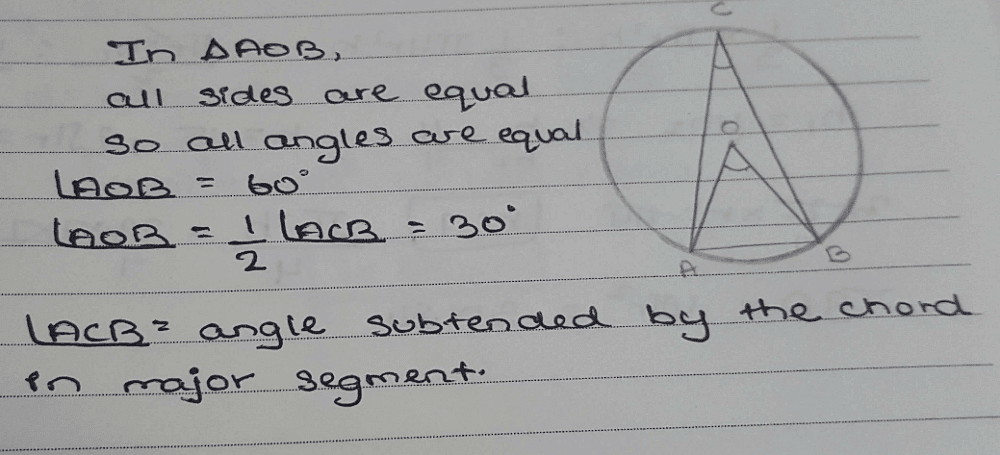 In ΔAOB,
all sides are equal
so all angles are equal
∠AOB = 60°
∠AOB = 1/2 ∠ACB = 30°
∠ACB = angle subtended by the chord
in major segment.
C
O
A
B